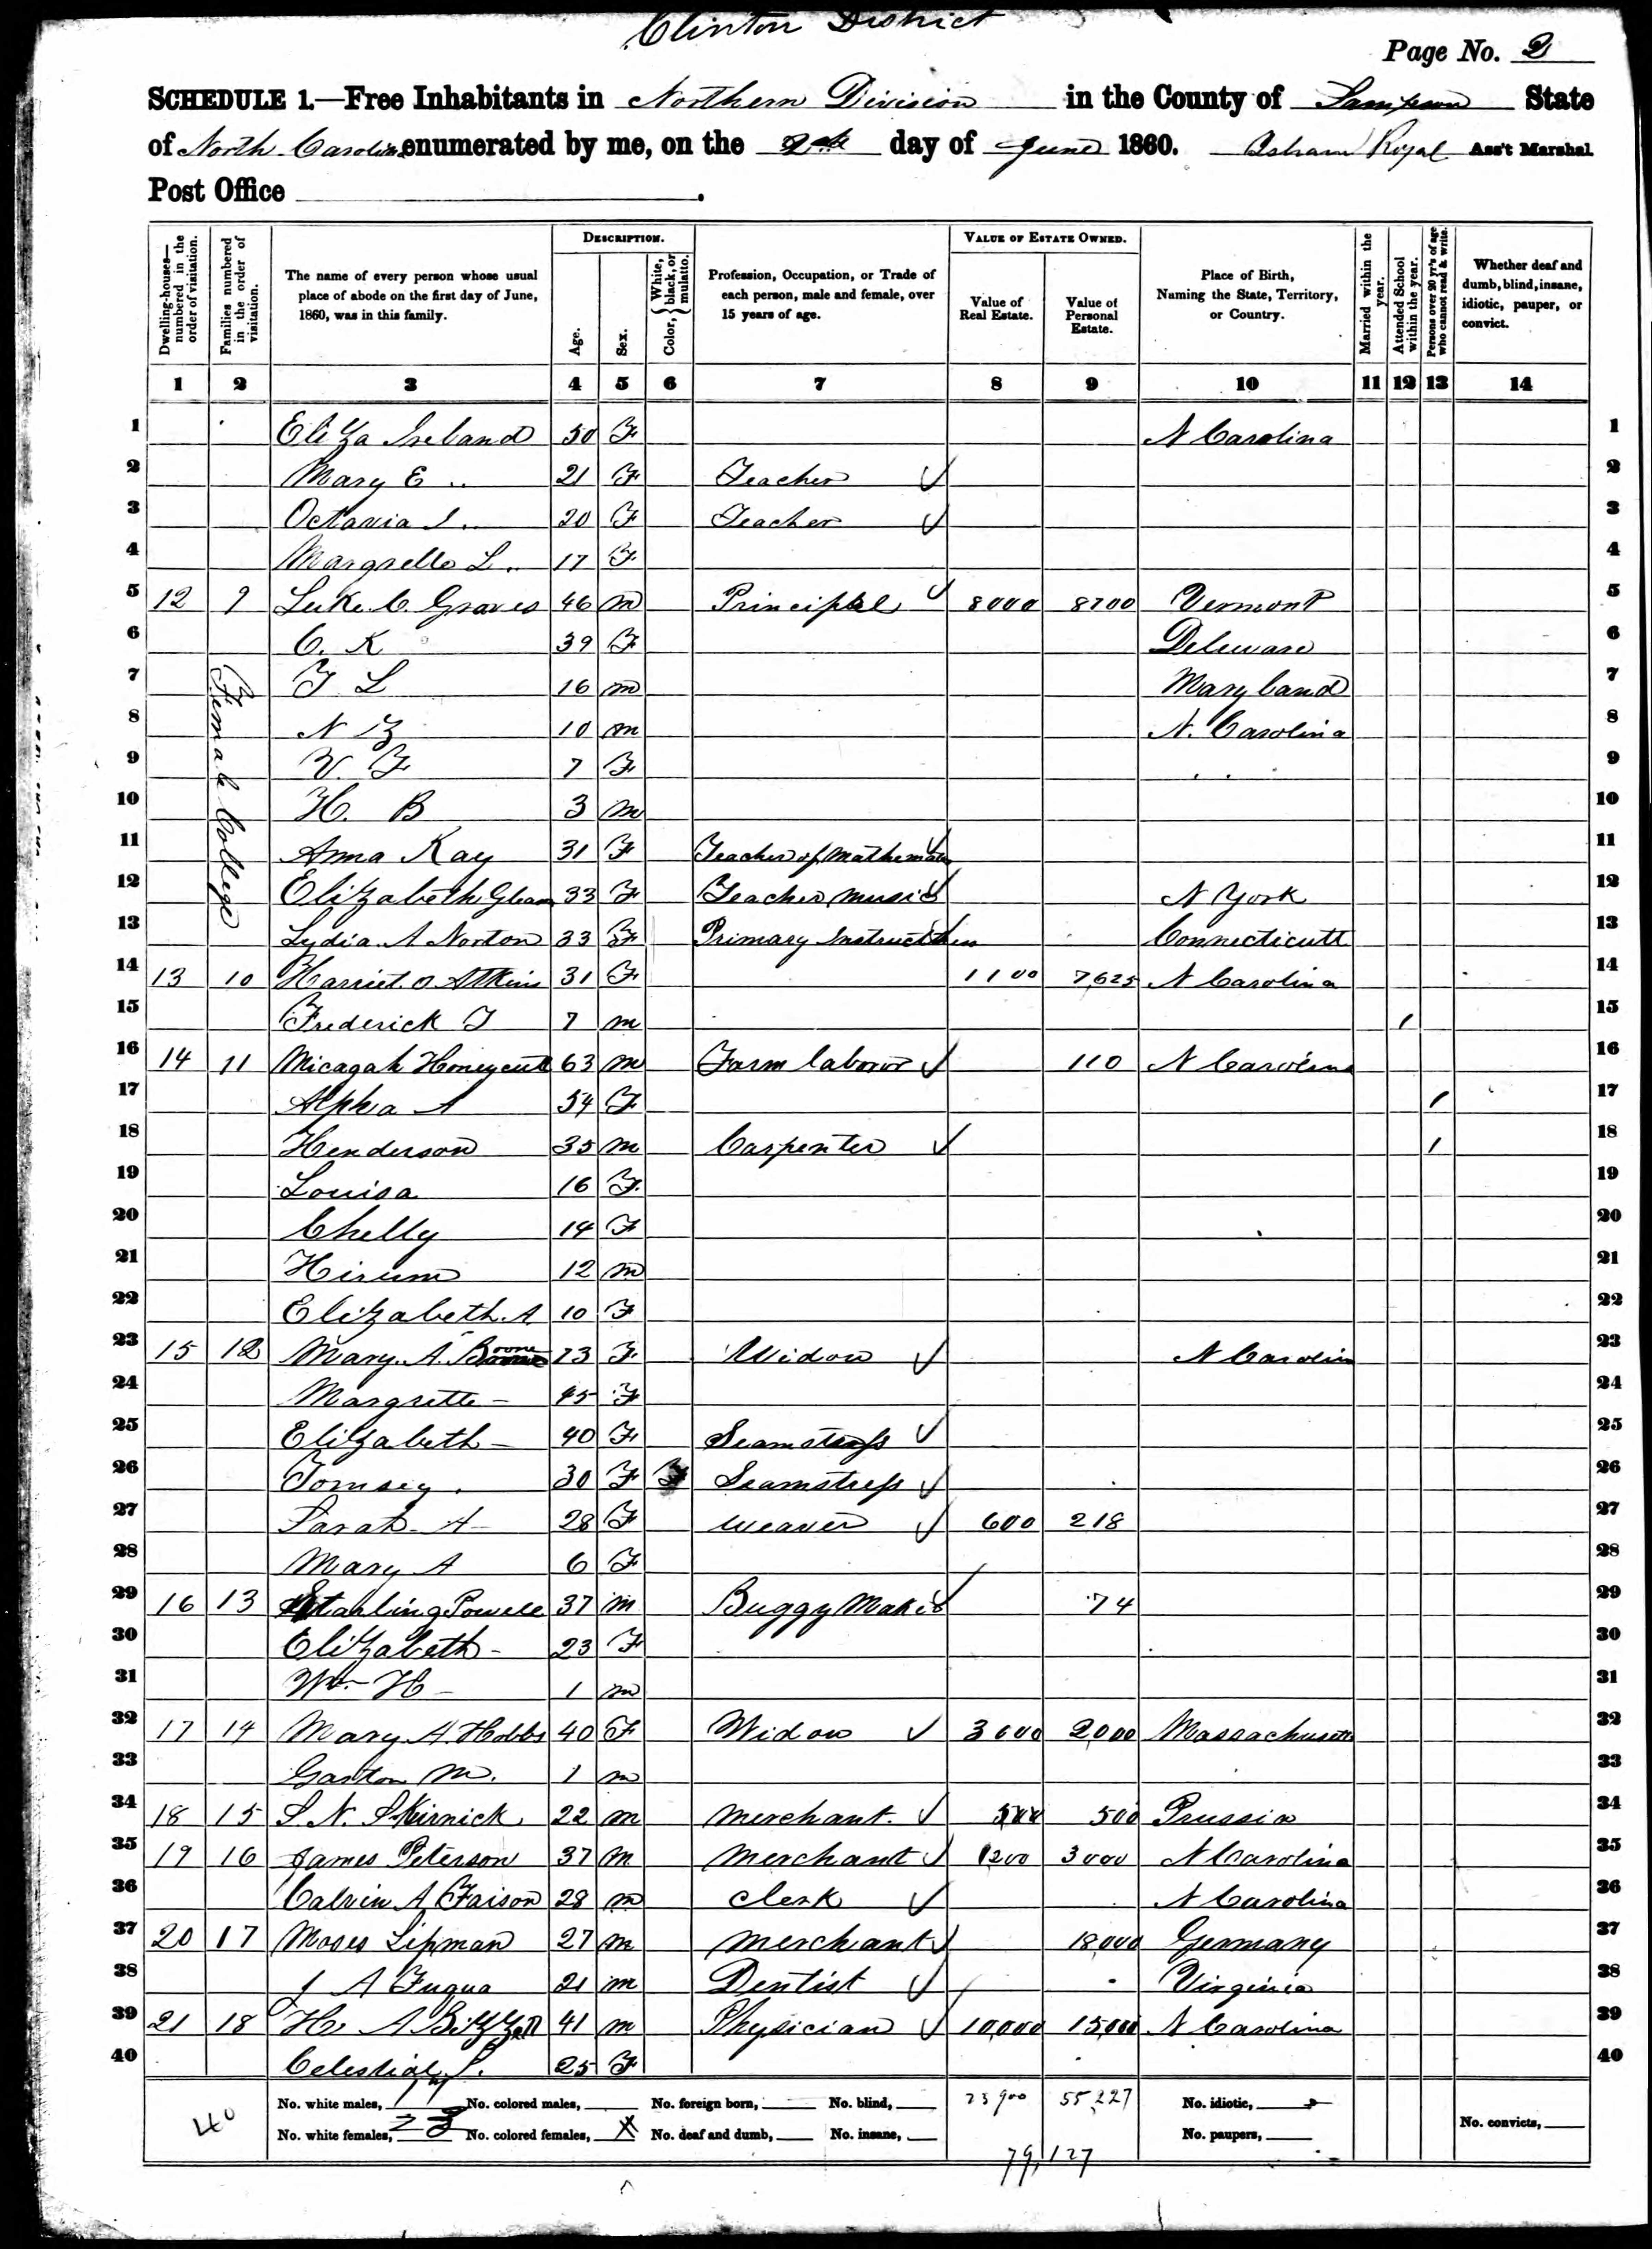 Clinton District
Page No. 2
SCHEDULE 1.—Free Inhabitants in Northern Division in the County of Sampson State
of North Carolina enumerated by me, on the 2nd day of June 1860. Royal Ass't Marshal.
Post Office
Dwelling-houses—numbered in the order of visitation.
Families numbered in the order of visitation.
The name of every person whose usual place of abode on the first day of June, 1860, was in this family.
DESCRIPTION.
Age.
Sex.
Color, { White, black, or mulatto.
Profession, Occupation, or Trade of each person, male and female, over 15 years of age.
VALUE OF ESTATE OWNED.
Value of Real Estate.
Value of Personal Estate.
Place of Birth, Naming the State, Territory, or Country.
Married within the year.
Attended School within the year.
Persons over 20 yr's of age who cannot read & write.
Whether deaf and dumb, blind, insane, idiotic, pauper, or convict.
1 2 3 4 5 6 7 8 9 10 11 12 13 14
1 Eliza Ireland 50 F N Carolina 1
2 Mary E .. 21 F Teacher 2
3 Octavia I .. 20 F Teacher 3
4 Margrette L .. 17 F 4
5 12 9 Luke C. Graves 46 m Principal 8000 8700 Vermont 5
6 C. K 39 F Deleware 6
7 T L 16 m Maryland 7
8 N Z 10 m N. Carolina 8
9 V. F 7 F 9
10 H. B 3 m 10
Female College
11 Anna Kay 31 F Teacher of Mathematics 11
12 Elizabeth 33 F Teacher music N York 12
13 Lydia A Norton 33 F Primary Connecticutt 13
14 13 10 Harriet O. Atkins 31 F 1100 7,625 N Carolina 14
15 Frederick J 7 m / 15
16 14 11 Micagah Honeycutt 63 m Farm laboror 110 N Carolina 16
17 Alpha A 54 F / 17
18 Henderson 35 m Carpenter / 18
19 Louisa 16 F 19
20 Chelly 14 F 20
21 Hirum 12 m 21
22 Elizabeth A 10 F 22
23 15 12 Mary A. Boone 73 F Widow N Carolina 23
24 Margrette - 45 F 24
25 Elizabeth - 40 F Seamstress 25
26 Tomsey 30 F Seamstress 26
27 Sarah A - 28 F Weaver 600 218 27
28 Mary A 6 F 28
29 16 13 Starling Powell 37 m Buggy Maker 74 29
30 Elizabeth - 23 F 30
31 Wm H - 1 m 31
32 17 14 Mary A. Hobbs 40 F Widow 3000 2,000 Massachusetts 32
33 Gaston M. 1 m 33
34 18 15 S. N. Skirnick 22 m merchant. 500 Prussia 34
35 19 16 James Peterson 37 m merchant 1200 3000 N Carolina 35
36 Calvin A Faison 28 m Clerk N Carolina 36
37 20 17 Moses Lipman 27 m merchant 18,000 Germany 37
38 J A Fuqua 21 m Dentist Virginia 38
39 21 18 A Bizzell 41 m Physician 10,000 15,000 N Carolina 39
40 Celestial S. 25 F 40
40 No. white males, 17 No. colored males, No. foreign born, No. blind, 23900 55,227 No. idiotic,
No. white females, 23 No. colored females, No. deaf and dumb, No. insane, No. paupers, No. convicts,
79,127